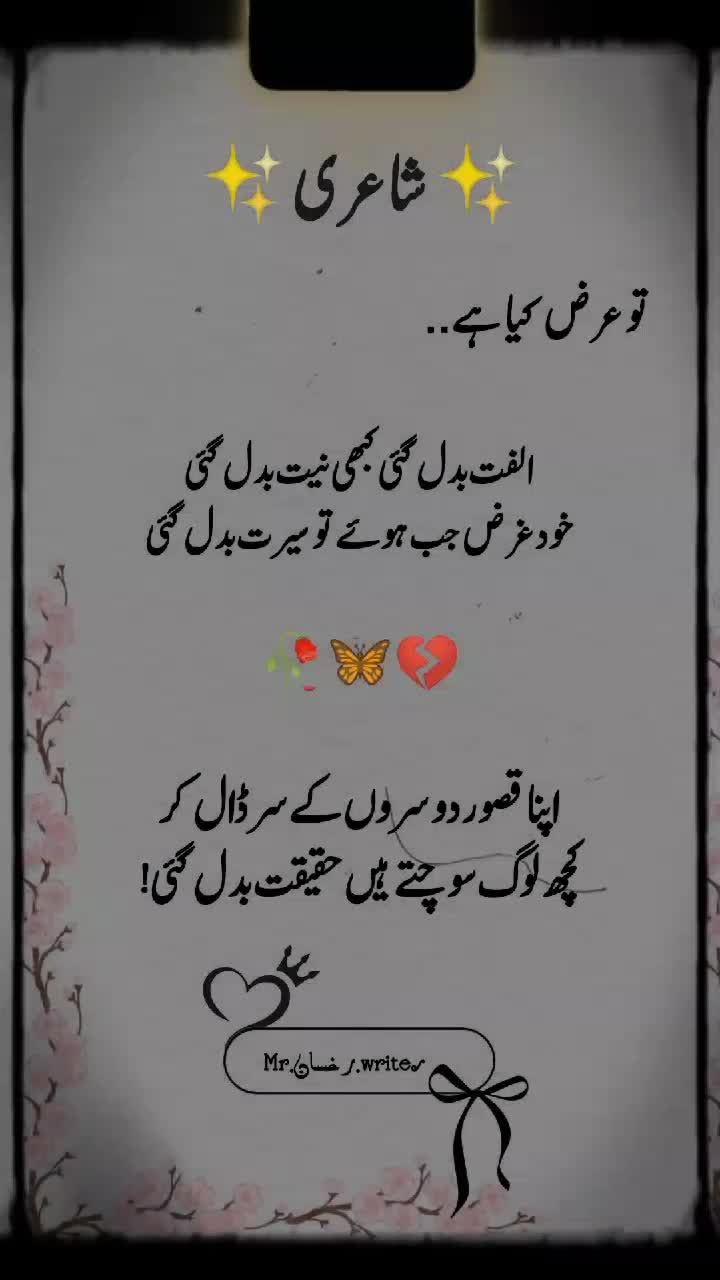 ✨ شاعری ✨
تو عرض کیا ہے..
الفت بدل گئی کبھی نیت بدل گئی
خود غرض جب ہوئے تو سیرت بدل گئی
🥀🦋💔
اپنا قصور دوسروں کے سر ڈال کر
کچھ لوگ سوچتے ہیں حقیقت بدل گئی!
Mr. .writes